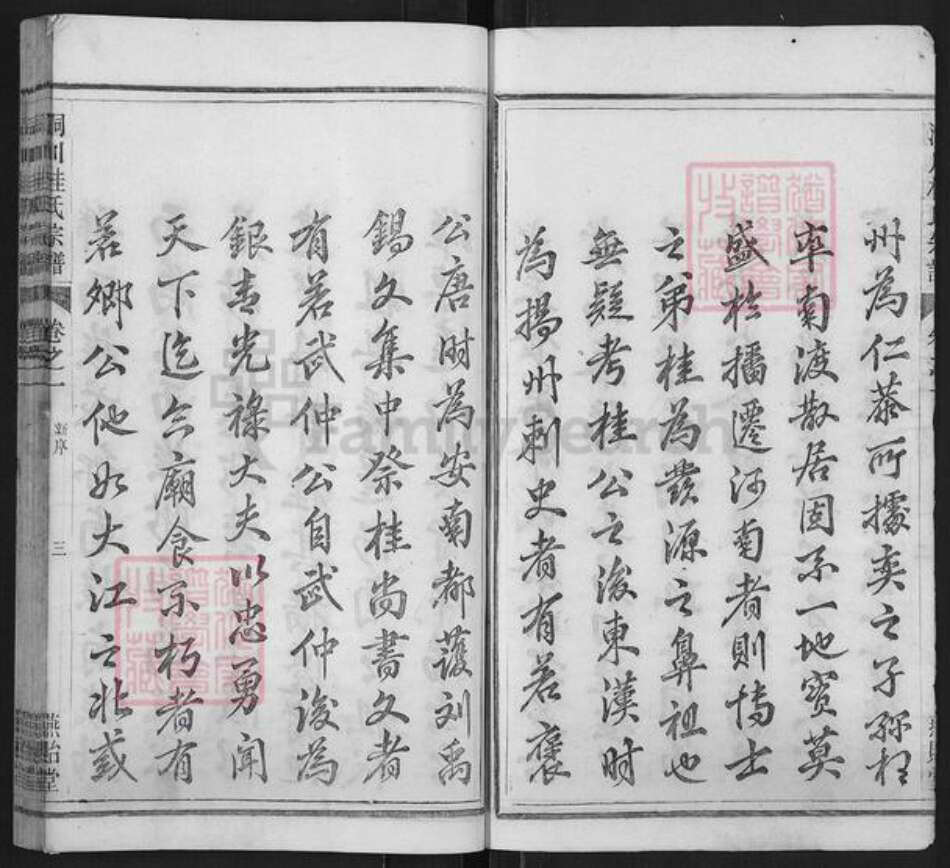 州為仁恭所據奕之子孫相
率南渡散居固不一地實莫
盛於播遷河南者則博士
之弟桂為發源之鼻祖也
無疑考桂公之後東漢時
為揚州刺史者有若褒
公唐時為安南都護刘禹
錫文集中祭桂尚書文者
有若武仲公自武仲後為
銀青光祿大夫以忠勇聞
天下迄今廟食不朽者有
若鄉公他如大江之北或
桂氏宗譜
卷之一
新序
三
燕貽堂
FamilySearch